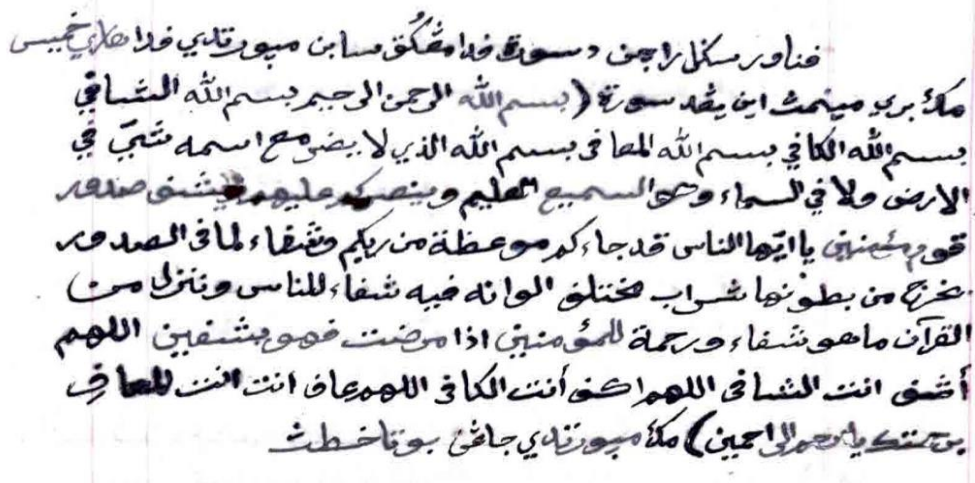 فناور سكل راجن دسورة فدا مڠكق سابن ميور تدي فدا هاري خميس
مك بري مينمث اين يڠد سورة (بسم الله الرحمن الرحيم بسم الله الشافي
بسم الله الكافي بسم الله المعافى بسم الله الذي لا يضر مع اسمه شيَ في
الارض ولا في السماء وهو السميع العليم وينصركم عليهم ويشف صدور
قوم مؤمنين يا ايّها الناس قد جاءكم موعظة من ربكم وشفاء لما فى الصدور
يخرج من بطونها شراب مختلف الوانه فيه شفاء للناس وننزل من
القرآن ماهو شفاء ورحمة للمؤمنين اذا مرضت فهو يشفين اللهم
أشف انت الشافى اللهم اكف أنت الكافى اللهم عاف انت انت المعافِ
برحمتك يا ارحم الراحمين) مك ميور تدي جاڠن بوتا خطث